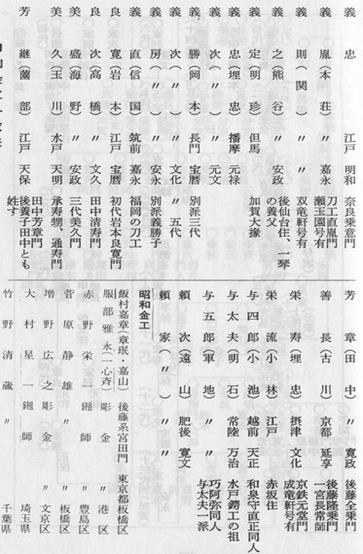 義忠　江戸　明和　奈良意寿門
義胤（本荘）〃　嘉永　刀工直胤門
義則（関）〃　〃　瀬玉園号有　双竜軒号有
義之（熊谷）〃　安政　後仙台住、一琴の養父
義定（明珍）但馬　加賀大掾
義忠（埋忠）播摩　元禄
義〃　〃　元文
義勝（岡本）長門　宝暦　別派三代
義次（〃）〃　文化　〃　五代
義房（〃）〃　安永　別派義勝子
義直（信国）筑前　嘉永　福岡の刀工
良寛（岩本）江戸　宝暦　初代岩本良寛門
良次（高橋）〃　文久　田中清寿門
美盛（海野）〃　安政　三代美久門
美久（玉川）水戸　天明　承寿、通寿門
芳継（薗部）江戸　天保　田中芳章門　後養子田中とも姓す
芳章（田中）〃　〃　後藤全乗門
善長（古川）京都　延享　後藤隆乗門　一宮長常師
栄寿（埋忠）摂津　文化　京鉄元堂門　成竜軒号有
栄流（小林）江戸　赤坂住
与四郎（小池）越前　天正　和泉守直正同人
与太夫（明石）常陸　万治　水戸鍔工の祖
与五郎（軍地）〃　〃　巧阿弥同人　与太夫一派
頼次（遠山）肥後　寛文
頼家（〃）〃　〃
昭和金工
飯村嘉章（章珉・嘉山）後藤系宮田門　東京都板橋区
服部雅永（一心斎）彫金　〃　港区
赤野栄一　鎺師　〃　豊島区
菅原静雄　〃　〃　板橋区
増野広之　彫金　〃　文京区
大村星一　鎺師　埼玉県
竹野清蔵　〃　千葉県